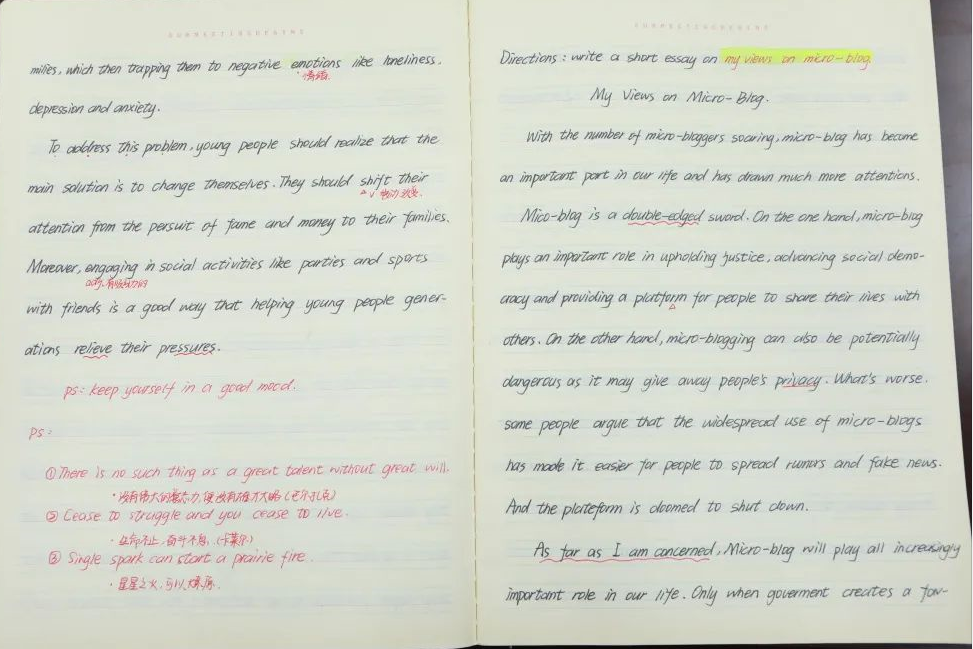 milies, which then trapping them to negative emotions like loneliness,
情绪
depression and anxiety.
To address this problem, young people should realize that the
main solution is to change themselves. They should shift their
attention from the persuit of fame and money to their families.
Moreover, engaging in social activities like parties and sports
adj. 有吸引力的
with friends is a good way that helping young people gener-
ations relieve their pressures.
ps: keep yourself in a good mood.
ps:
①There is no such thing as a great talent without great will.
·没有伟大的意志力,便没有雄才大略(巴尔扎克)
② Cease to struggle and you cease to live.
·生命不止,奋斗不息.(卡莱尔)
③ Single spark can start a prairie fire.
·星星之火,可以燎原.
Directions: write a short essay on my views on micro-blog
My Views on Micro-Blog.
With the number of micro-bloggers soaring, micro-blog has become
an important part in our life and has drawn much more attentions.
Mico-blog is a double-edged sword. On the one hand, micro-blog
plays an important role in upholding justice, advancing social demo-
cracy and providing a platform for people to share their lives with
others. On the other hand, micro-blogging can also be potentially
dangerous as it may give away people's privacy. What's worse,
some people argue that the widespread use of micro-blogs
has made it easier for people to spread rumors and fake news.
And the plateform is doomed to shut down.
As far as I am concerned, Micro-blog will play all increasingly
important role in our life. Only when goverment creates a fav-